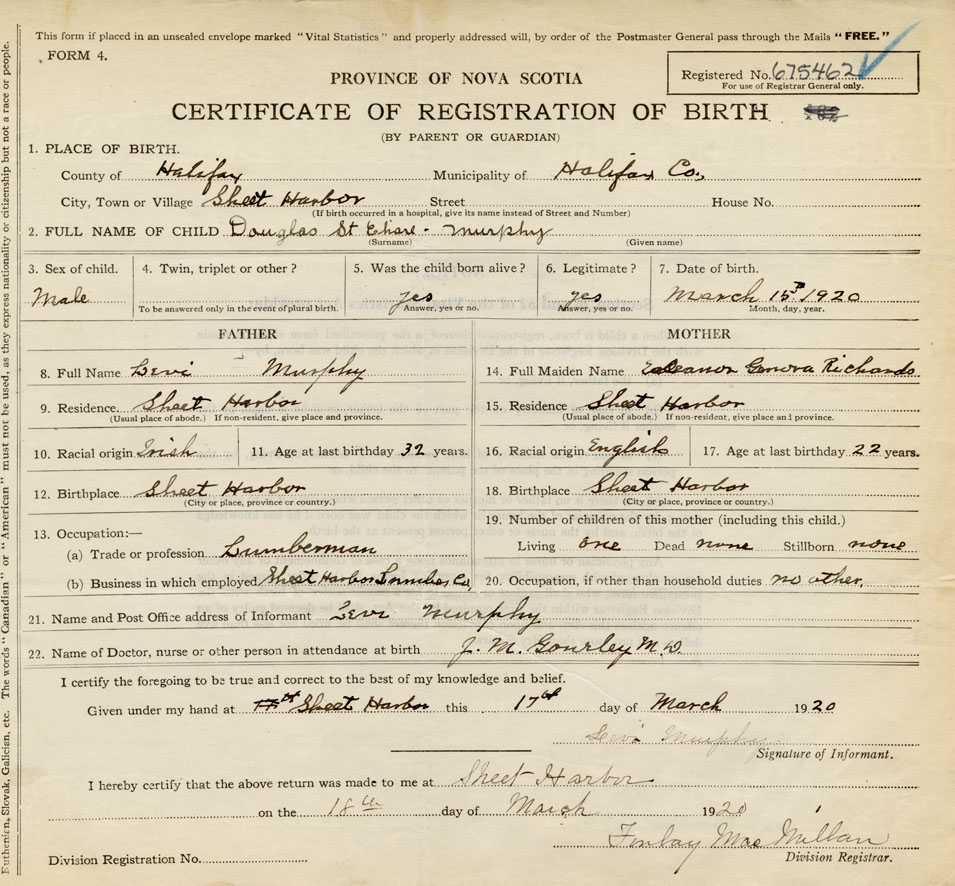 This form if placed in an unsealed envelope marked "Vital Statistics" and properly addressed will, by order of the Postmaster General pass through the Mails "FREE."
FORM 4.
Registered No. 675462
For use of Registrar General only.
PROVINCE OF NOVA SCOTIA
CERTIFICATE OF REGISTRATION OF BIRTH
(BY PARENT OR GUARDIAN)
1. PLACE OF BIRTH.
County of Halifax Municipality of Halifax Co.,
City, Town or Village Sheet Harbor Street House No.
(If birth occurred in a hospital, give its name instead of Street and Number)
2. FULL NAME OF CHILD Douglas St Murphy
(Surname) (Given name)
3. Sex of child. 4. Twin, triplet or other? 5. Was the child born alive? 6. Legitimate? 7. Date of birth.
Male yes yes March 15 1920
To be answered only in the event of plural birth. Answer, yes or no. Answer, yes or no. Month, day, year.
FATHER MOTHER
8. Full Name Levi Murphy 14. Full Maiden Name Eleanor Genova Richards
9. Residence Sheet Harbor 15. Residence Sheet Harbor
(Usual place of abode.) If non-resident, give place and province. (Usual place of abode.) If non-resident, give place and province.
10. Racial origin Irish 11. Age at last birthday 32 years. 16. Racial origin English 17. Age at last birthday 22 years.
12. Birthplace Sheet Harbor 18. Birthplace Sheet Harbor
(City or place, province or country.) (City or place, province or country.)
13. Occupation:— 19. Number of children of this mother (including this child.)
(a) Trade or profession Lumberman Living one Dead none Stillborn none
(b) Business in which employed Sheet Harbor Lumber Co, 20. Occupation, if other than household duties no other.
21. Name and Post Office address of Informant Levi Murphy
22. Name of Doctor, nurse or other person in attendance at birth J. M. Gourley M.D.
I certify the foregoing to be true and correct to the best of my knowledge and belief.
Given under my hand at Sheet Harbor this 17th day of March 1920
Levi Murphy
Signature of Informant.
I hereby certify that the above return was made to me at Sheet Harbor
on the 18th day of March 1920
Finlay MacMillan
Division Registrar.
Division Registration No.
Ruthenian, Slovak, Galician, etc. The words "Canadian" or "American" must not be used, as they express nationality or citizenship but not a race or people.